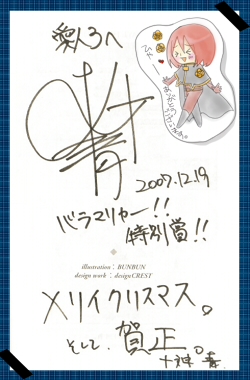 愛人3へ
2007.12.19
バラマリャー!!
特別賞!!
illustration : BUNBUN
design work : designCREST
メリイクリスマス。
そして、賀正。
ありがとうございます。